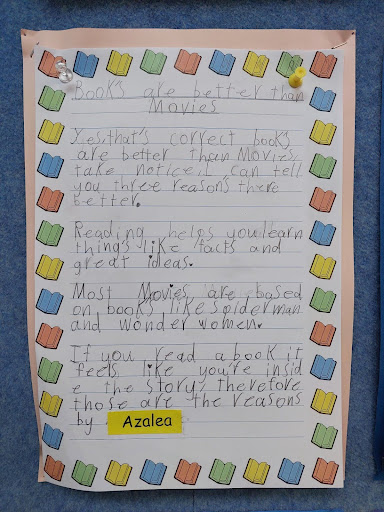 Books are better than
Movies
Yes that's correct books
are better than Movies,
take notice. I can tell
you three reasons there
better.
Reading helps you learn
things like facts and
great ideas.
Most Movies are based
on books like spiderman
and wonder women.
If you read a book it
feels like you're insid
e the story, therefore
those are the reasons
by Azalea